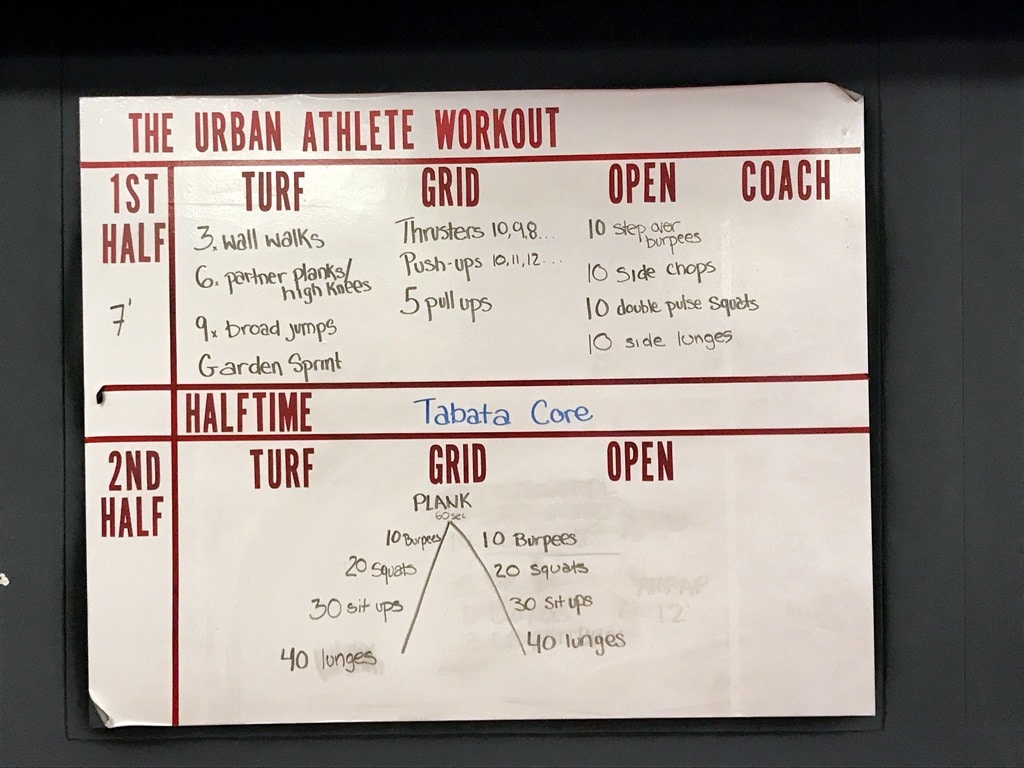 THE URBAN ATHLETE WORKOUT
1ST
HALF
7'
TURF
3x wall walks
6x partner planks/
high knees
9x broad jumps
Garden Sprint
GRID
Thrusters 10,9,8...
Push-ups 10,11,12...
5 pull ups
OPEN
10 step over
burpees
10 side chops
10 double pulse squats
10 side lunges
COACH
HALFTIME
Tabata Core
2ND
HALF
TURF
GRID
OPEN
PLANK
60sec
10 Burpees
10 Burpees
20 squats
20 squats
30 sit ups
30 sit ups
40 lunges
40 lunges
12